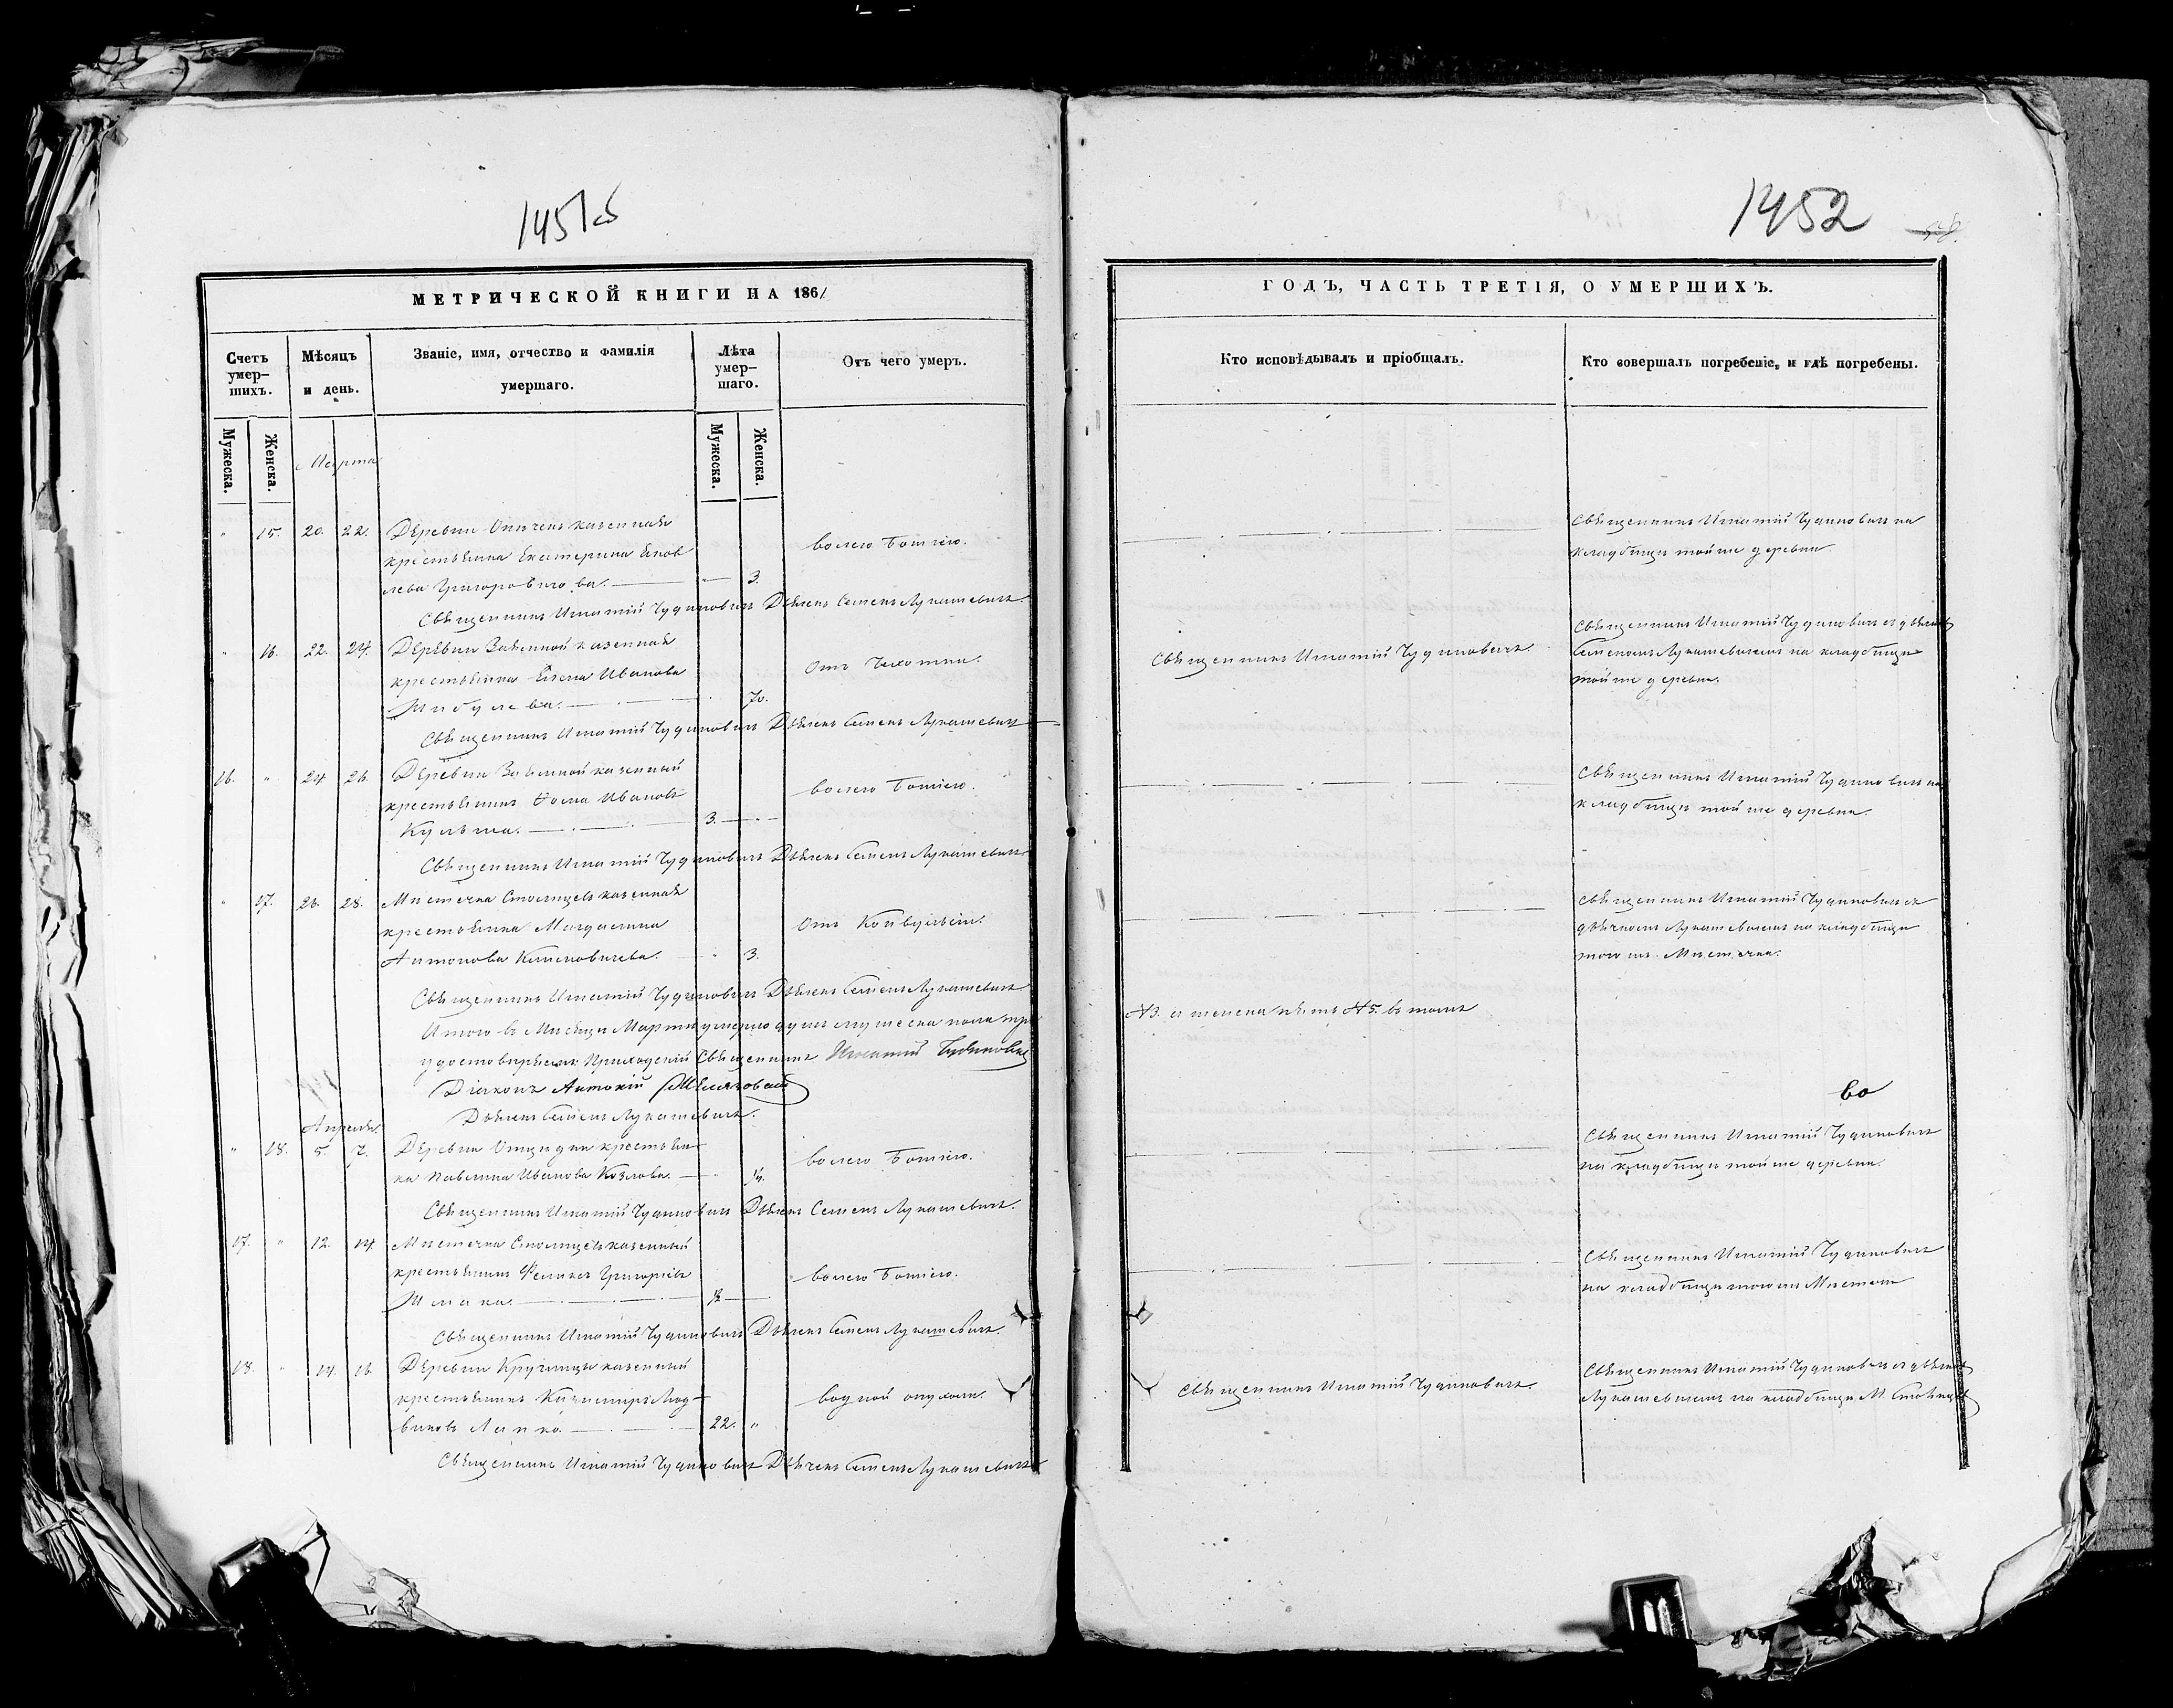 1451об
1452
МЕТРИЧЕСКОЙ КНИГИ НА 1861
Счетъ умер-
шихъ.
Мѣсяцъ
и день.
Званіе, имя, отчество и фамилія
умершаго.
Лѣта
умер-
шаго.
Отъ чего умеръ.
Мужеска.
Женска.
Мужеска.
Женска.
Марта
" 15. 20. 22. Деревни казенная
крестьянка Екатерина Яков
лева 3. волею Божіею.
Священникъ Игнатій Чудиновичъ Дьячекъ Семенъ Лукашевичъ.
" 16. 22. 24. Деревни казенная
крестьянка Елена Иванова
70. Отъ Чахотки.
Священникъ Игнатій Чудиновичъ Дьячекъ Семенъ Лукашевичъ
16. " 24 26. Деревни казенный
крестьянинъ Фома Ивановъ
3. волею Божіею.
Священникъ Игнатій Чудиновичъ Дьячекъ Семенъ Лукашевичъ
" 17. 26. 28. Мистечка Столпцевъ казенная
крестьянка Магдалина
Антонова 3. Отъ Конвульсіи.
Священникъ Игнатій Чудиновичъ Дьячекъ Семенъ Лукашевичъ
Итого въ Мисяцѣ Мартѣ умерло душъ мужеска пола три
удостовѣряемъ: Приходскій Священникъ Игнатій Чудиновичъ
Діаконъ Антоній
Дьячекъ Семенъ Лукашевичъ.
Апреля
" 18. 5. 7. Деревни крестьян-
ка Павлина Иванова Козлова. волею Божіею.
Священникъ Игнатій Чудиновичъ Дьячекъ Семенъ Лукашевичъ.
17. " 12. 14. Мистечка Столпцевъ казенный
крестьянинъ Феликсъ Григорьевъ
волею Божіею.
Священникъ Игнатій Чудиновичъ Дьячекъ Семенъ Лукашевичъ.
18. " 14. 16. Деревни казенный
крестьянинъ Казимиръ Люд-
виковъ 22. " водной опухоли.
Священникъ Игнатій Чудиновичъ Дьячекъ Семенъ Лукашевичъ
ГОДЪ, ЧАСТЬ ТРЕТІЯ, О УМЕРШИХЪ.
Кто исповѣдывалъ и пріобщалъ.
Кто совершалъ погребеніе, и гдѣ погребены.
Священникъ Игнатій Чудиновичъ на
кладбищѣ той же деревни.
Священникъ Игнатій Чудиновичъ.
Священникъ Игнатій Чудиновичъ съ дьячк
Семеномъ Лукашевичемъ на кладбищѣ
той же деревни.
Священникъ Игнатій Чудиновичъ на
кладбищѣ той же деревни.
Священникъ Игнатій Чудиновичъ съ
дьячкомъ Лукашевичемъ на кладбищѣ
того же Мистечка.
№3. а женска пять №5. въ томъ
во
Священникъ Игнатій Чудиновичъ
на кладбищѣ той же деревни.
Священникъ Игнатій Чудиновичъ
на кладбищѣ того же
Священникъ Игнатій Чудиновичъ.
Священникъ Игнатій Чудиновичъ съ дьячк
Лукашевичемъ на кладбищѣ М. Столпцевъ